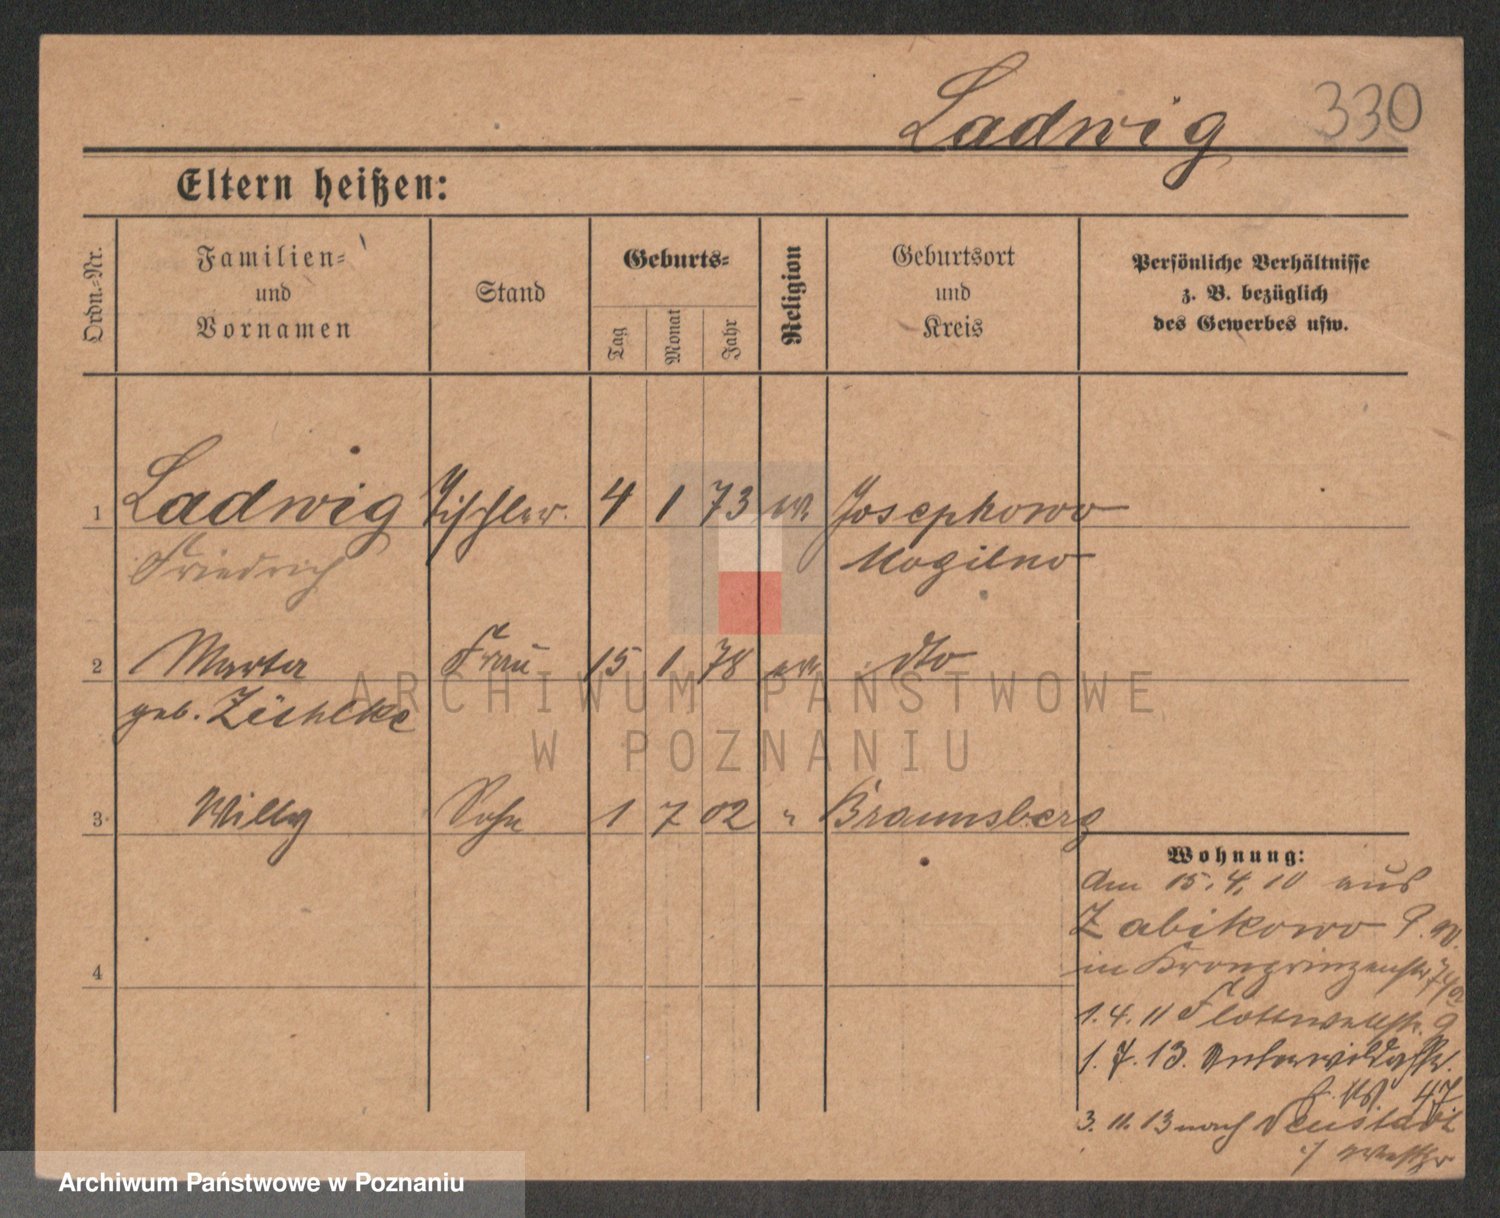 Ladwig 330
Eltern heißen:
Ordn.-Nr.
Familien-
und
Vornamen
Stand
Geburts-
Tag
Monat
Jahr
Religion
Geburtsort
und
Kreis
Persönliche Verhältnisse
z. B. bezüglich
des Gewerbes usw.
1 Ladwig Tischler. 4 1 73 ev. Josephowo
Friedrich Mogilno
2 Marta Frau 15 1 78 ev. dto
geb.
3 Willy Sohn 1 7 02 " Braunsberg
Wohnung:
am 15.4.10 aus
Zabikowo
in Kronprinzenstr.
4
1.4.11 Flottwellstr. 9
1.7.13.
47
3.11.13 nach Neustadt
ARCHIWUM PAŃSTWOWE
W POZNANIU
Archiwum Państwowe w Poznaniu